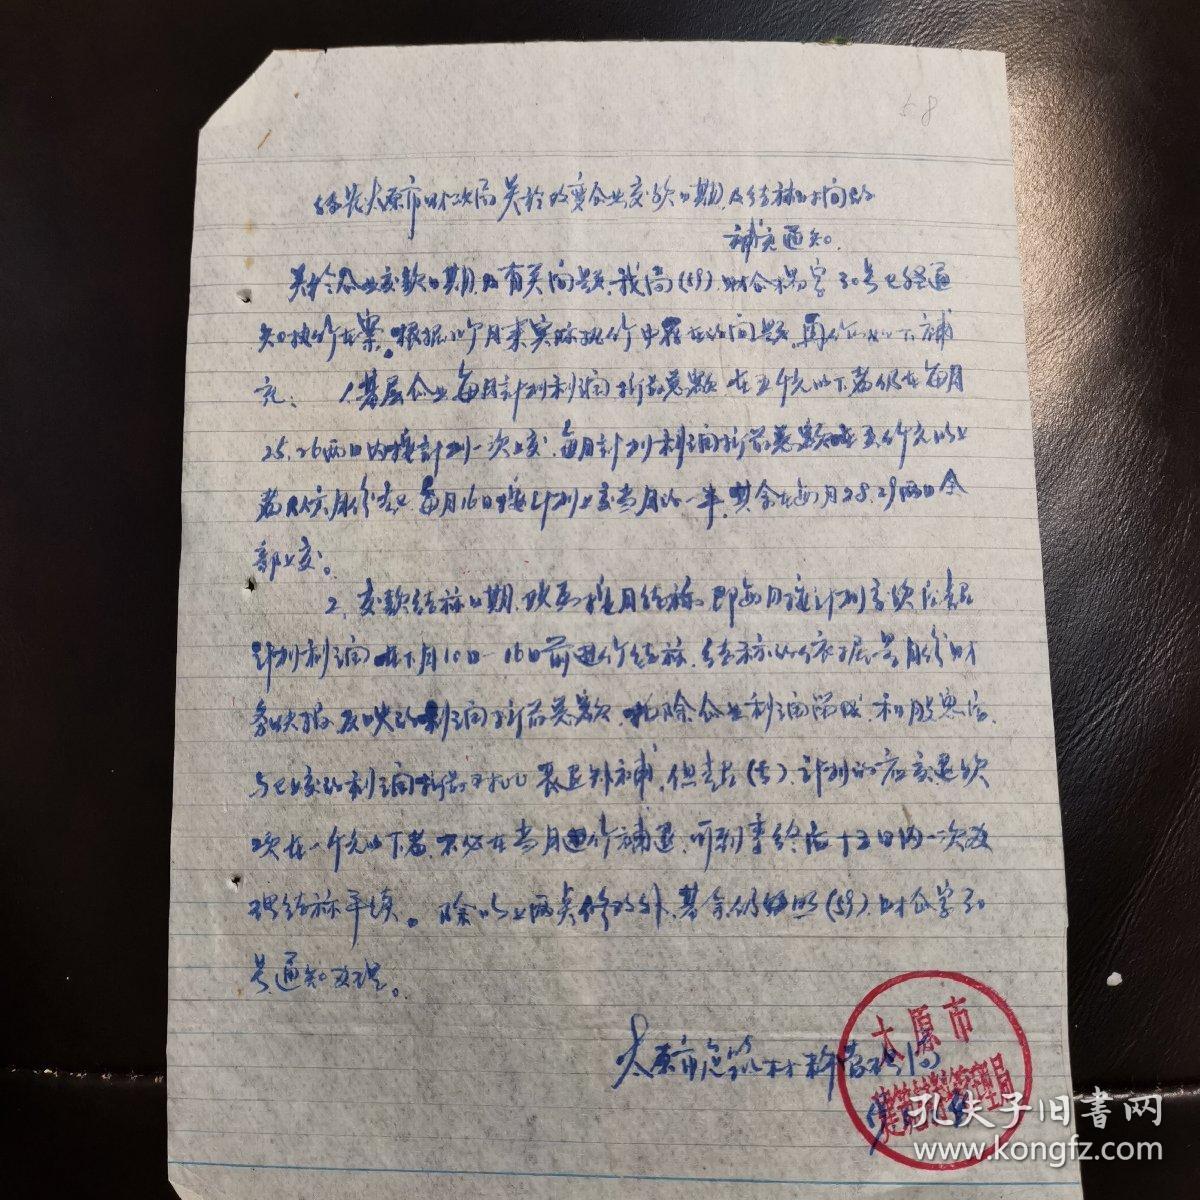 58
太原市财政局关於改变企业交款日期及结祘时间的
補充通知
关於企业交款日期及有关问题，我局(59)财企字30号已经通
知执行在案。根据几个月来实际执行中存在的问题，再作如下補
充： 1.基层企业每月計划利潤折旧总额在五仟元以下者仍在每月
25、26两日内按計划一次上交，每月計划利潤折旧总额在五仟元以上
者 每月16日按計划上交当月的一半，其余在每月28、29两日全
部上交。
2、交款结祘日期，改为按月结祘，即每月按計划交款后
計划利潤在下月10日—16日前进行结祘，结祘的依据是月份财
务快报反映的利潤折旧总额扣除企业利潤留成和股息后，
与已交的利潤折旧 長退补補，但 計划的应交退款
项在一仟元以下者，不必在当月进行補退，可到季终后十五日内一次办
理结祘手续。除以上两点修改外，其余仍按照(59)财企字30
号通知办理。
太原市建筑材料管理局
太原市
建筑材料管理局
孔夫子旧书网
www.kongfz.com